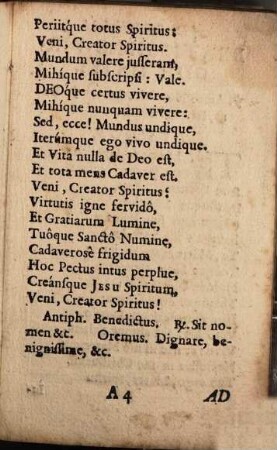 Periitq́ue totus Spiritus:
Veni, Creator Spiritus.
Mundum valere jusserant,
Mihíque subscripsi: Vale.
DEOque certus vivere,
Mihíque nunquam vivere:
Sed, ecce! Mundus undique,
Iterúmque ego vivo undique.
Et Vita nulla de Deo est,
Et tota mens Cadaver est.
Veni, Creator Spiritus!
Virtutis igne fervidô,
Et Gratiarum Lumine,
Tuôque Sanctô Numine,
Cadaverosè frigidum
Hoc Pectus intus perplue,
Creánsque JESU Spiritum,
Veni, Creator Spiritus!
Antiph. Benedictus. ℟. Sit no-
men &c. Oremus. Dignare, be-
nignissime, &c.
A 4 AD